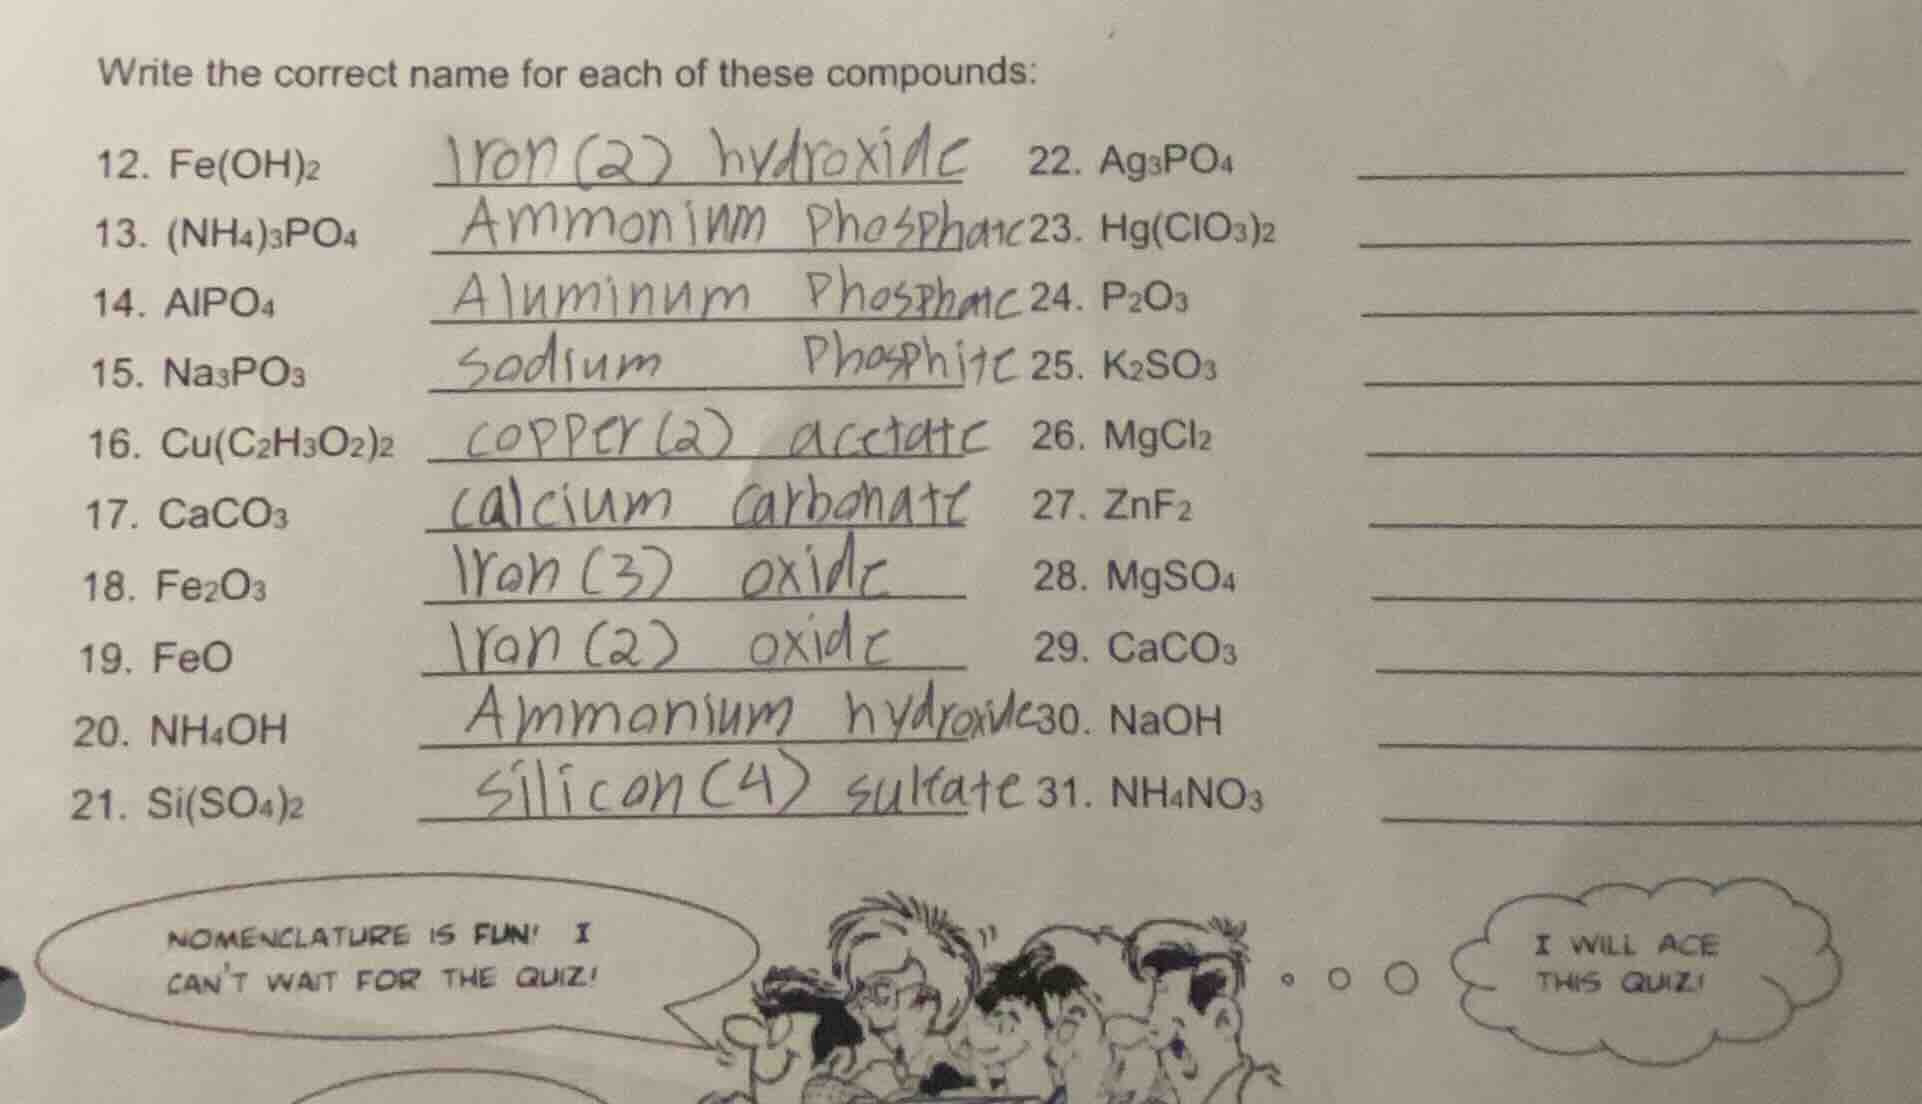 Write the correct name for each of these compounds:
12. Fe(OH)2 Iron (2) hydroxide
13. (NH4)3PO4 Ammonium Phosphate
14. AlPO4 Aluminum Phosphate
15. Na3PO3 sodium Phosphite
16. Cu(C2H3O2)2 copper (2) acetate
17. CaCO3 calcium carbonate
18. Fe2O3 Iron (3) oxide
19. FeO Iron (2) oxide
20. NH4OH Ammonium hydroxide
21. Si(SO4)2 silicon (4) sulfate
22. Ag3PO4
23. Hg(ClO3)2
24. P2O3
25. K2SO3
26. MgCl2
27. ZnF2
28. MgSO4
29. CaCO3
30. NaOH
31. NH4NO3
NOMENCLATURE IS FUN! I
CAN'T WAIT FOR THE QUIZ!
I WILL ACE
THIS QUIZ!